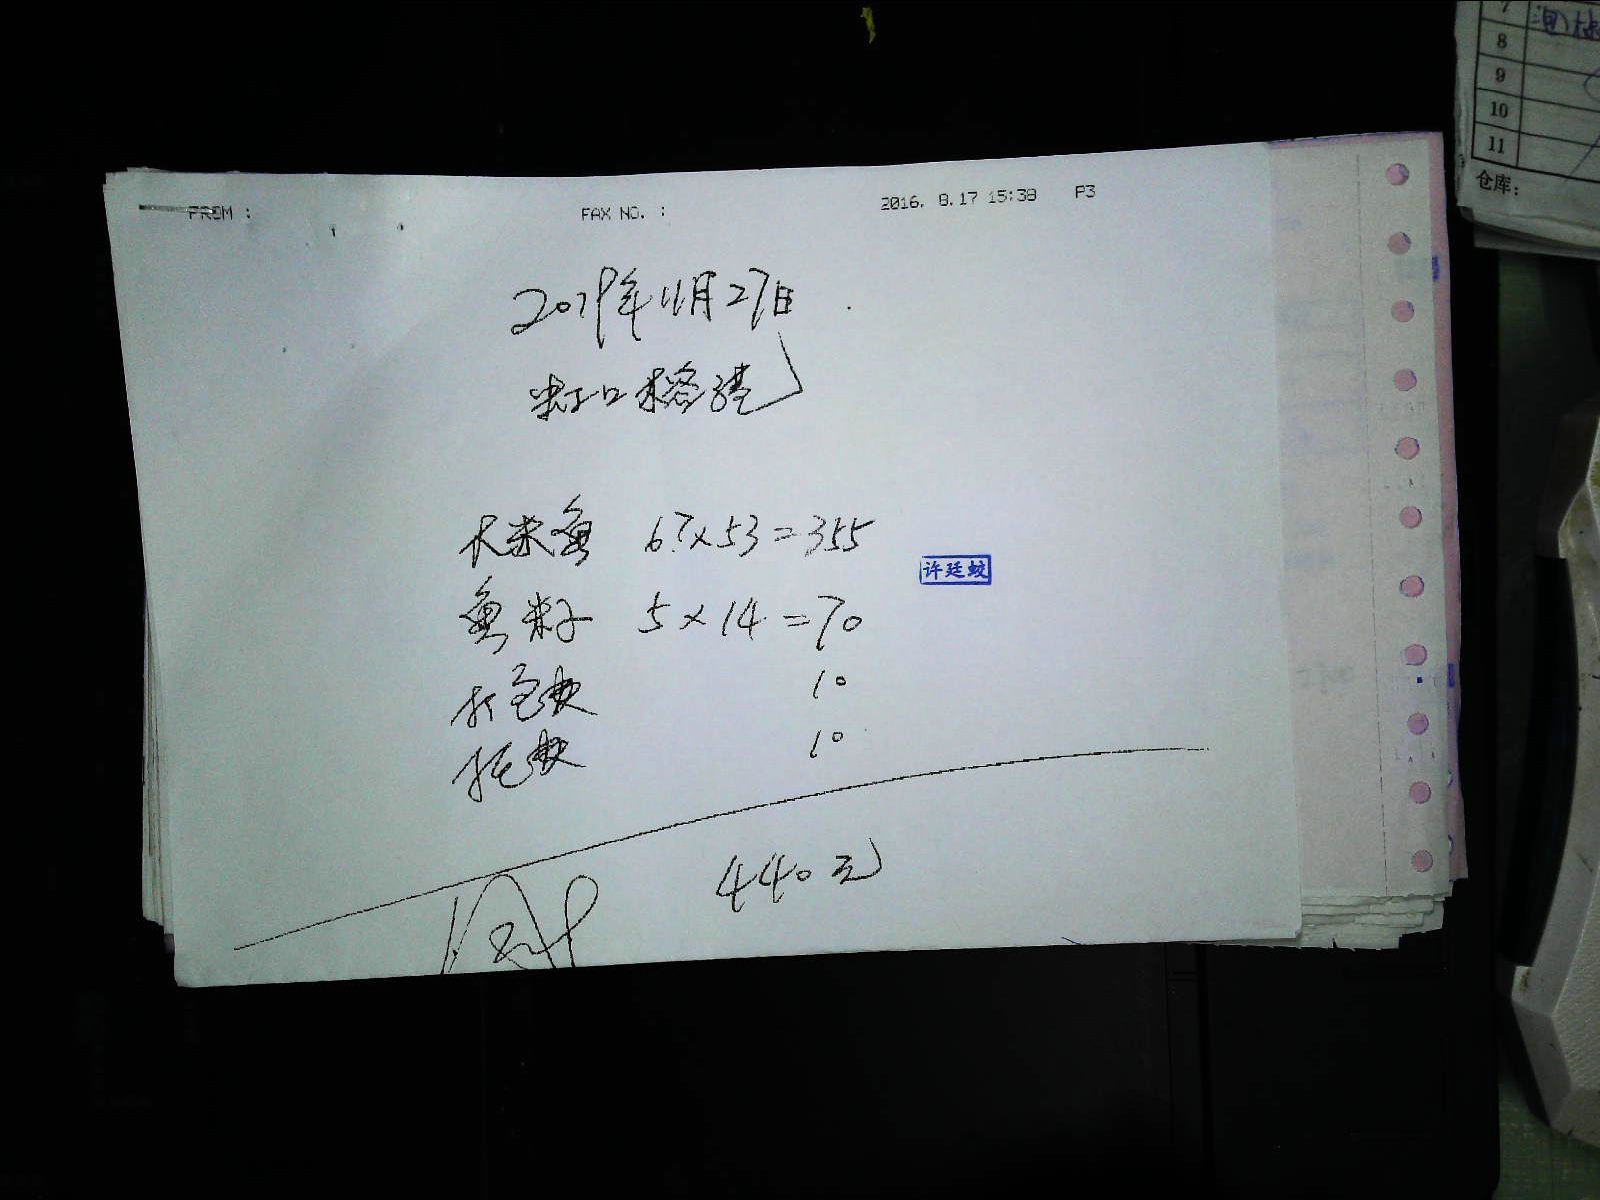 FROM :
FAX NO. :
2016. 8.17 15:38 P3
2019年11月27日
虹口
大米鱼 6.7×53=355
许廷蛟
鱼籽 5×14=70
打包费 10
托费 10
440元
7
8
9
10
11
仓库：